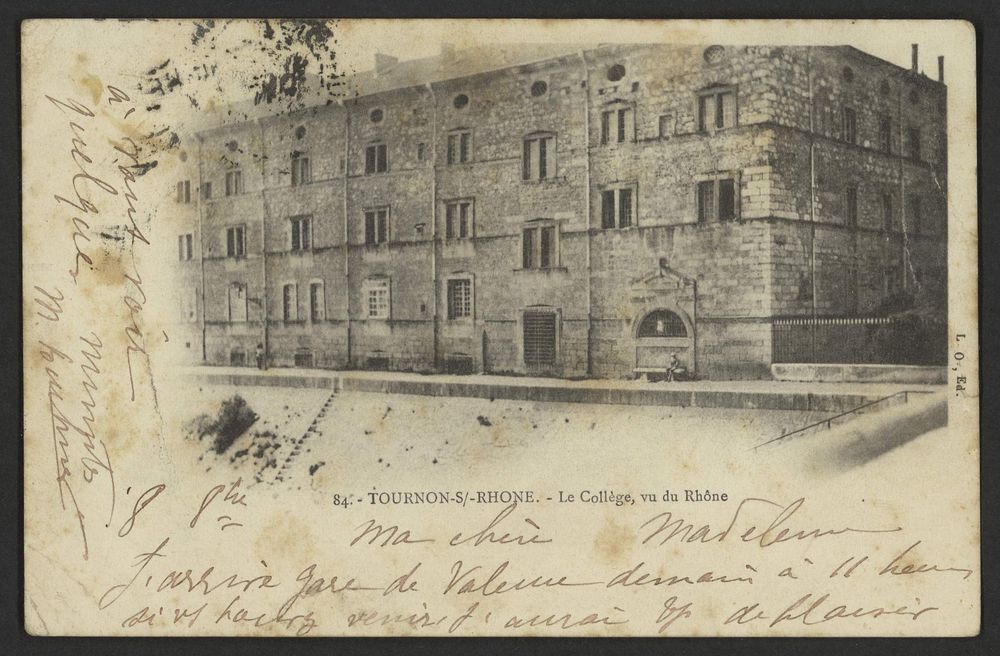 84. - TOURNON-S/-RHONE. - Le Collège, vu du Rhône
L. O., Ed.
8 8bre
Ma chère Madeleine
J'arrive gare de Valence demain à 11 heures
si vs pouvez venir, j'aurai bp de plaisir
à vous voir
quelques minutes
M.